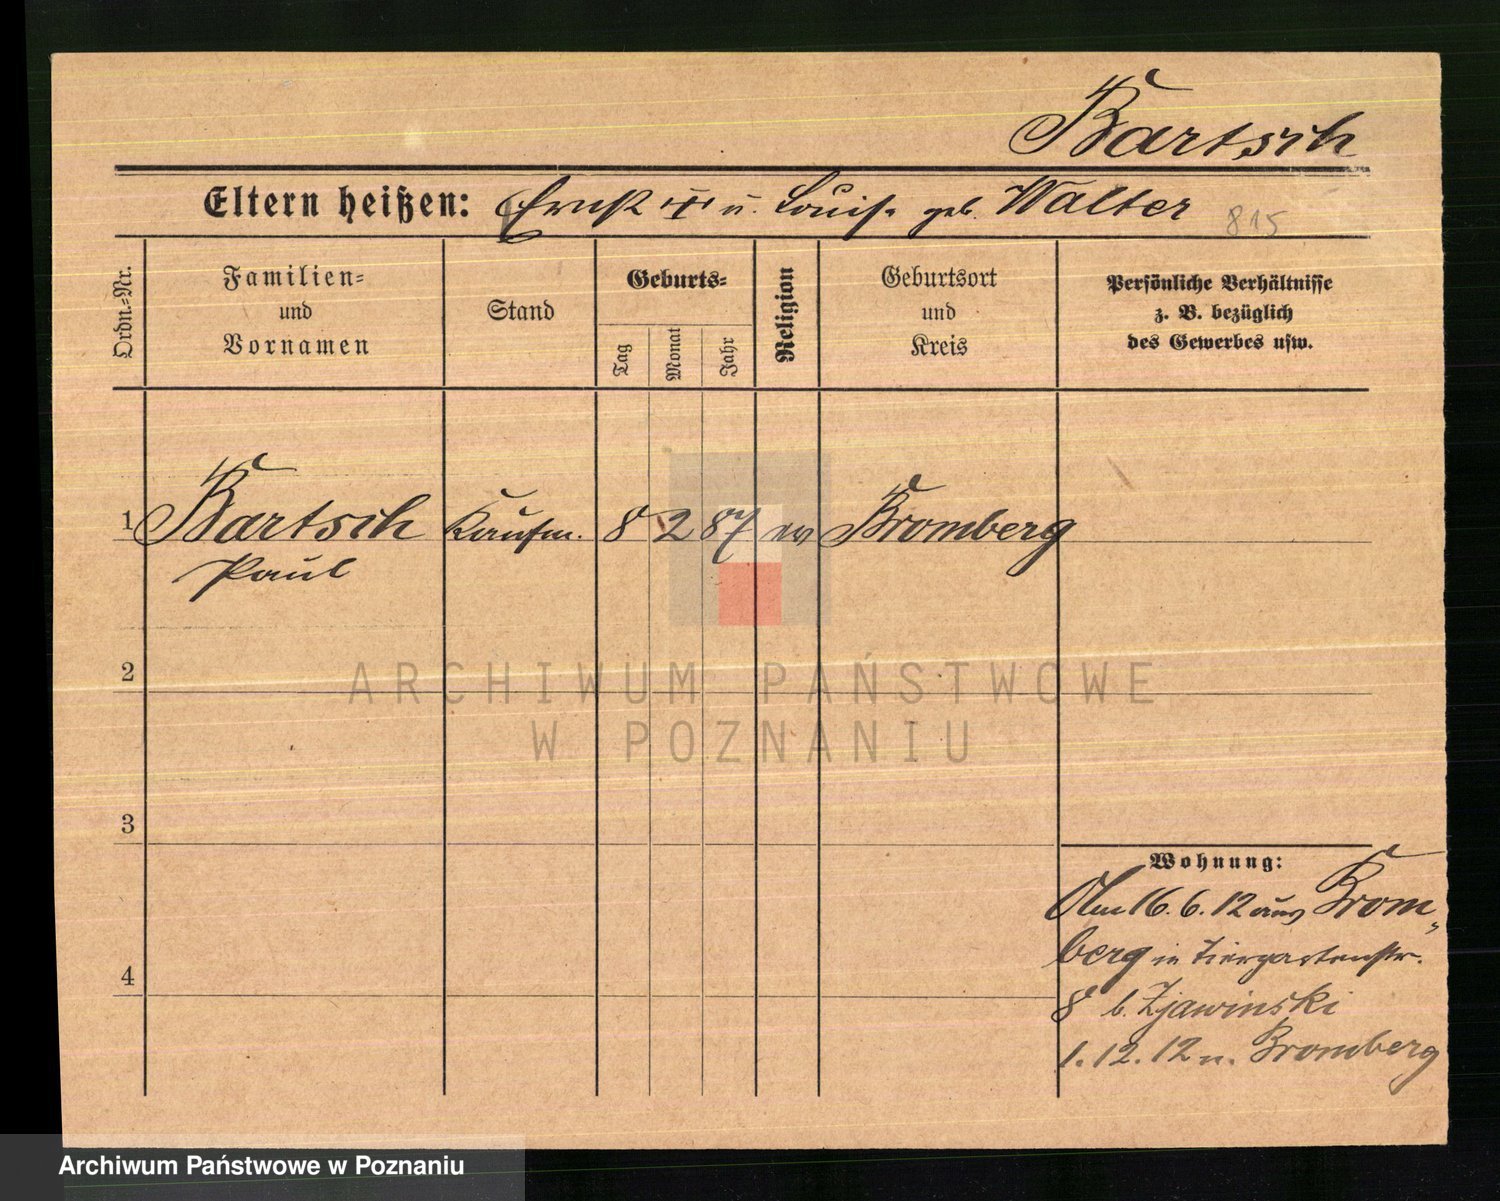 Bartsch
Eltern heißen: Ernst † u. Louise geb. Walter 815
Ordn.-Nr.
Familien-
und
Vornamen
Stand
Geburts-
Tag
Monat
Jahr
Religion
Geburtsort
und
Kreis
Persönliche Verhältnisse
z. B. bezüglich
des Gewerbes usw.
1 Bartsch Kaufm. 8 2 87 ev Bromberg
Paul
2
ARCHIWUM PAŃSTWOWE
W POZNANIU
3
Wohnung:
Am 16.6.12 aus Brom-
berg in Tiergartenstr.
4
8 b. Zjawinski
1.12.12 n. Bromberg
Archiwum Państwowe w Poznaniu